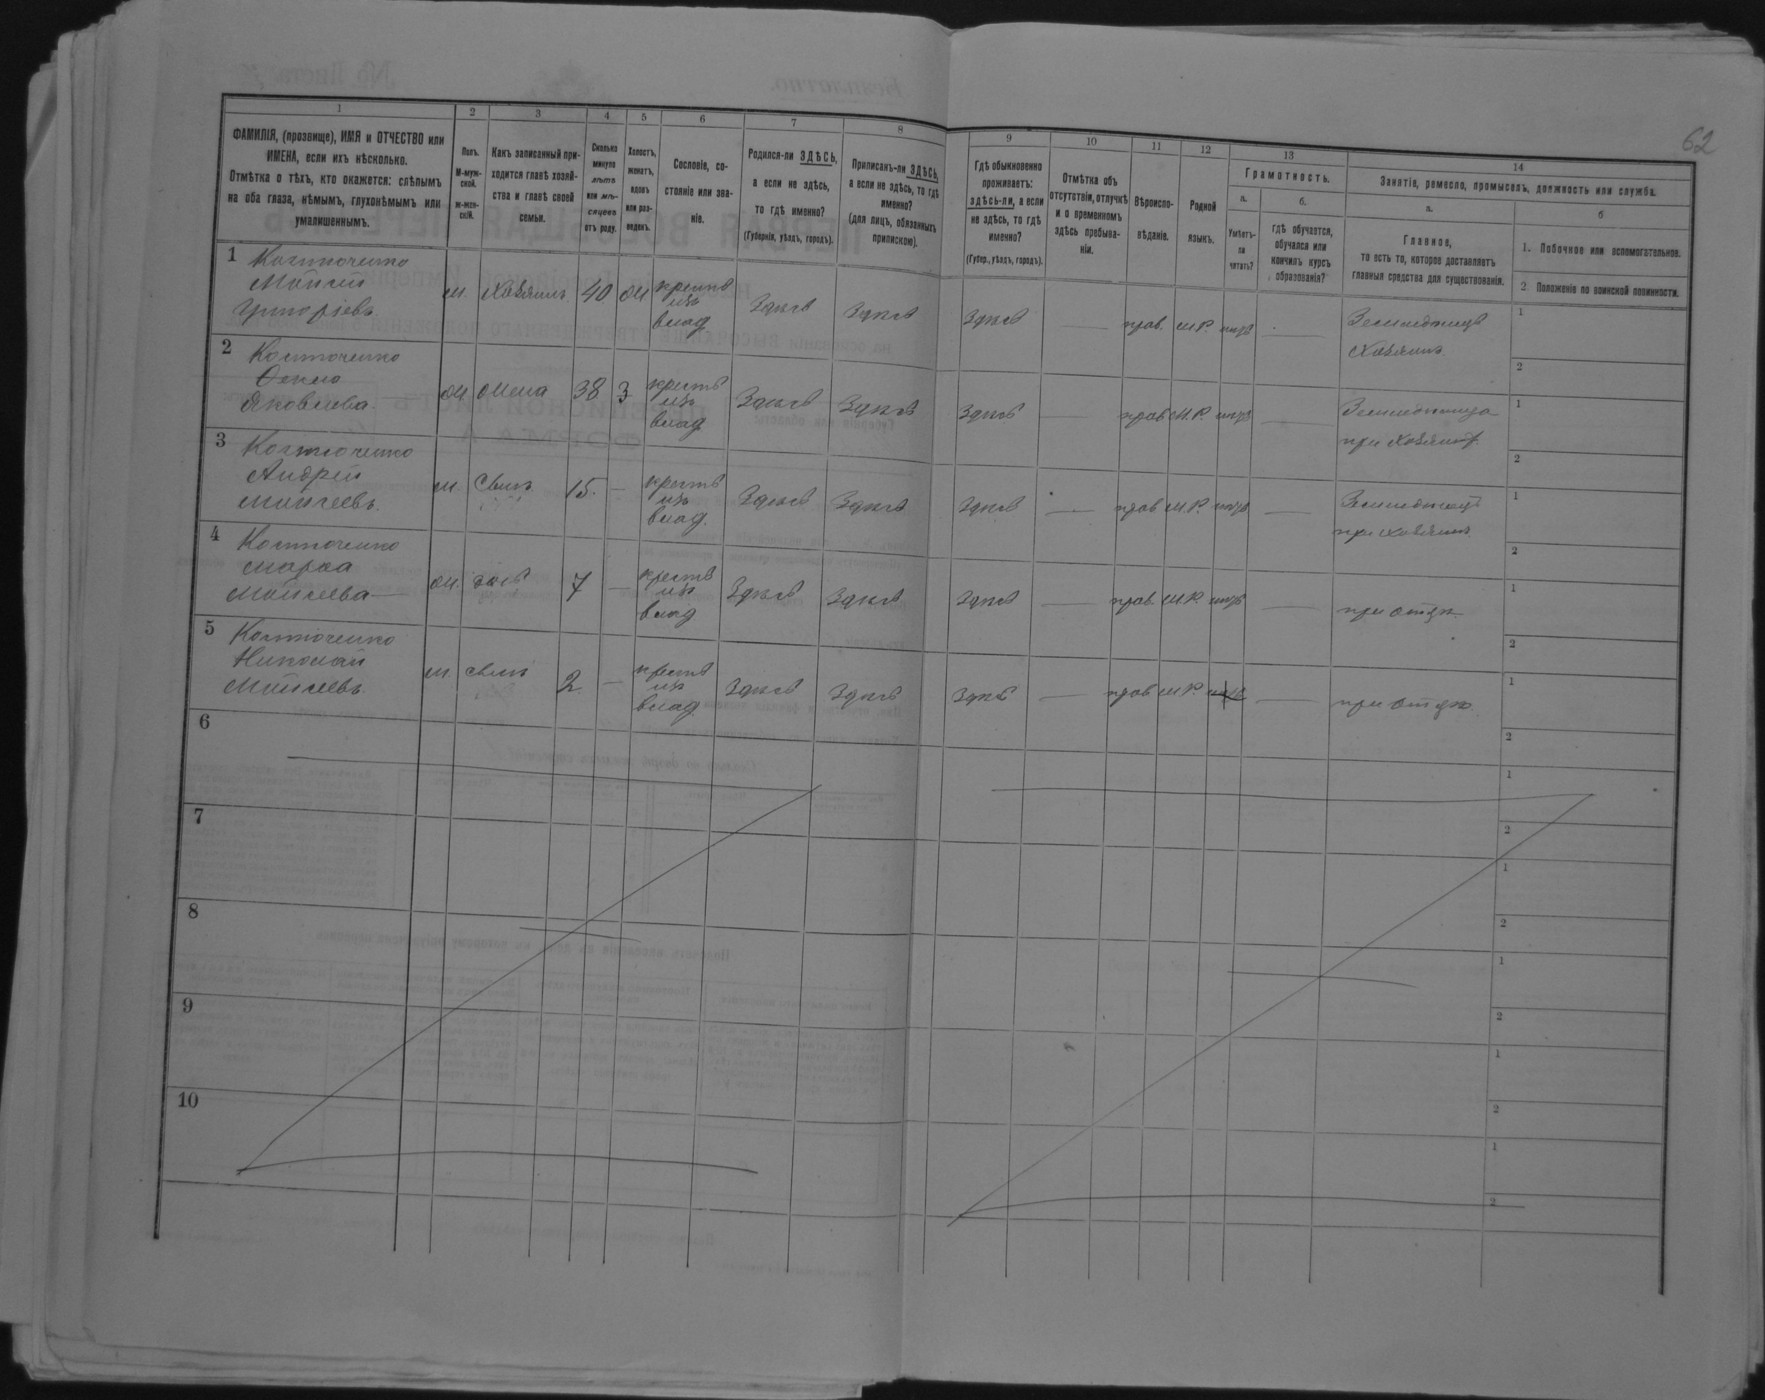 62
1 2 3 4 5 6 7 8 9 10 11 12 13 14
ФАМИЛІЯ, (прозвище), ИМЯ и ОТЧЕСТВО или
ИМЕНА, если ихъ нѣсколько.
Отмѣтка о тѣхъ, кто окажется: слѣпымъ
на оба глаза, нѣмымъ, глухонѣмымъ или
умалишеннымъ.
Полъ.
М-муж-
ской.
Ж-жен-
скій.
Какъ записанный при-
ходится главѣ хозяй-
ства и главѣ своей
семьи.
Сколько
минуло
лѣтъ
или мѣ-
сяцевъ
отъ роду.
Холостъ,
женатъ,
вдовъ
или раз-
веденъ.
Сословіе, со-
стояніе или зва-
ніе.
Родился-ли ЗДѢСЬ,
а если не здѣсь,
то гдѣ именно?
(Губернія, уѣздъ, городъ).
Приписанъ-ли ЗДѢСЬ,
а если не здѣсь, то гдѣ
именно?
(для лицъ, обязанныхъ
припискою).
Гдѣ обыкновенно
проживаетъ:
здѣсь-ли, а если
не здѣсь, то гдѣ
именно?
(Губер., уѣздъ, городъ).
Отмѣтка объ
отсутствіи, отлучкѣ
и о временномъ
здѣсь пребыва-
ніи.
Вѣроиспо-
вѣданіе.
Родной
языкъ.
Грамотность.
а.
Умѣетъ-
ли
читать?
б.
Гдѣ обучается,
обучался или
кончилъ курсъ
образованія?
Занятіе, ремесло, промыселъ, должность или служба.
а.
Главное,
то есть то, которое доставляетъ
главныя средства для существованія.
б
1. Побочное или вспомогательное.
2 Положеніе по воинской повинности.
1 Костюченко
Мойсей
Григорьевъ
м Хозяинъ 40 ж
крестъ
изъ
влад.
Здѣсь Здѣсь Здѣсь — прав. М.Р. нѣтъ —
Земледѣлецъ
Хозяинъ
1
2
2 Костюченко
Яковлева
ж жена 38 З
крестъ
изъ
влад
Здѣсь Здѣсь Здѣсь — прав М.Р. нѣтъ —
при хозяинѣ
1
2
3 Костюченко
Андрей
Мойсеевъ
м. Сынъ 15. —
крестъ
изъ
влад.
Здѣсь Здѣсь Здѣсь — прав М.Р. нѣтъ —
Земледѣлецъ
при хозяинѣ
1
2
4 Костюченко
Марфа
Мойсеева
ж. дочь 7 —
крестъ
изъ
влад
Здѣсь Здѣсь Здѣсь — прав. М.Р. нѣтъ —
при отцѣ
1
2
5 Костюченко
Николай
Мойсеевъ
м. сынъ 2 —
крестъ
изъ
влад
Здѣсь Здѣсь Здѣсь — прав М.Р. —
при отцѣ
1
2
6
1
2
7
1
2
8
1
2
9
1
2
10
1
2